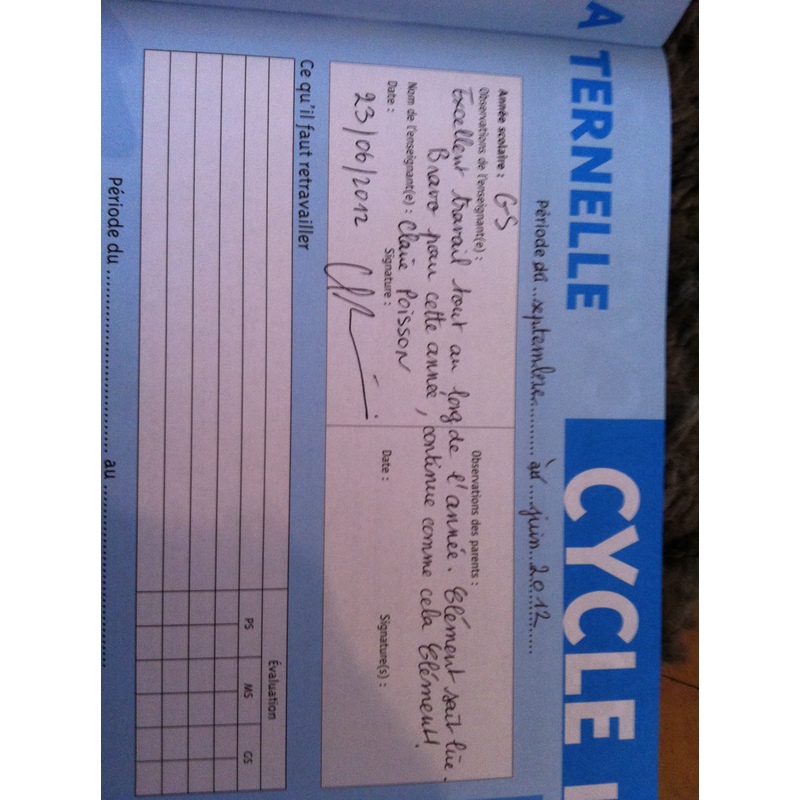 A TERNELLE
CYCLE
Période du ..septembre.......... au ....juin..2012......
Année scolaire : GS
Observations de l'enseignant(e) :
Observations des parents :
Excellent travail tout au long de l'année. Clément sait lire.
Bravo pour cette année, continue comme cela Clément!
Nom de l'enseignant(e) : Claire Poisson
Date :
Signature :
Date :
Signature(s) :
23/06/2012
Ce qu'il faut retravailler
Évaluation
PS MS GS
Période du .............................. au ..............................